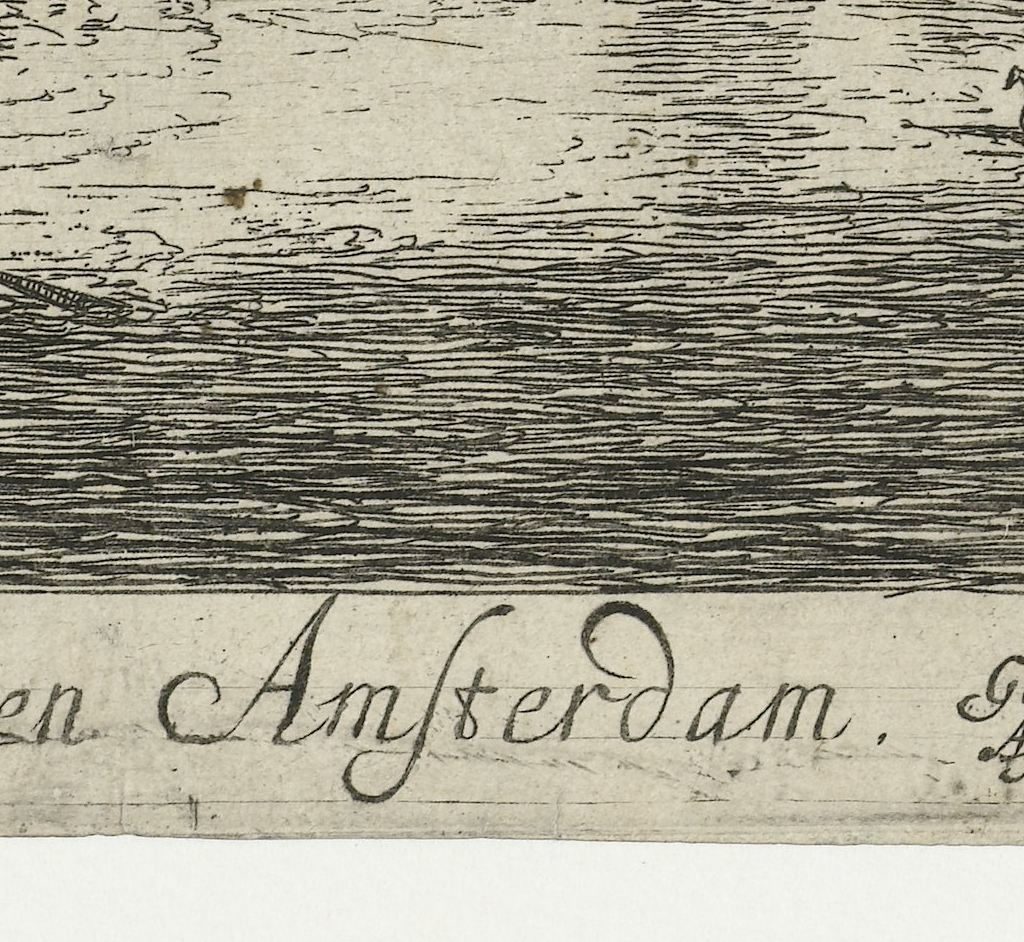 en Amſterdam. G
A